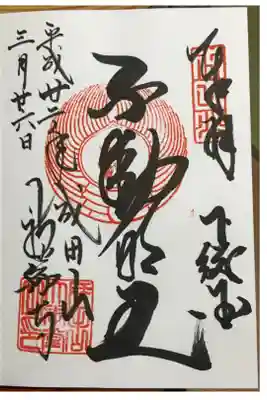 奉拝
下総国
不動明王
成田山
新勝寺
平成廿二年
三月廿六日